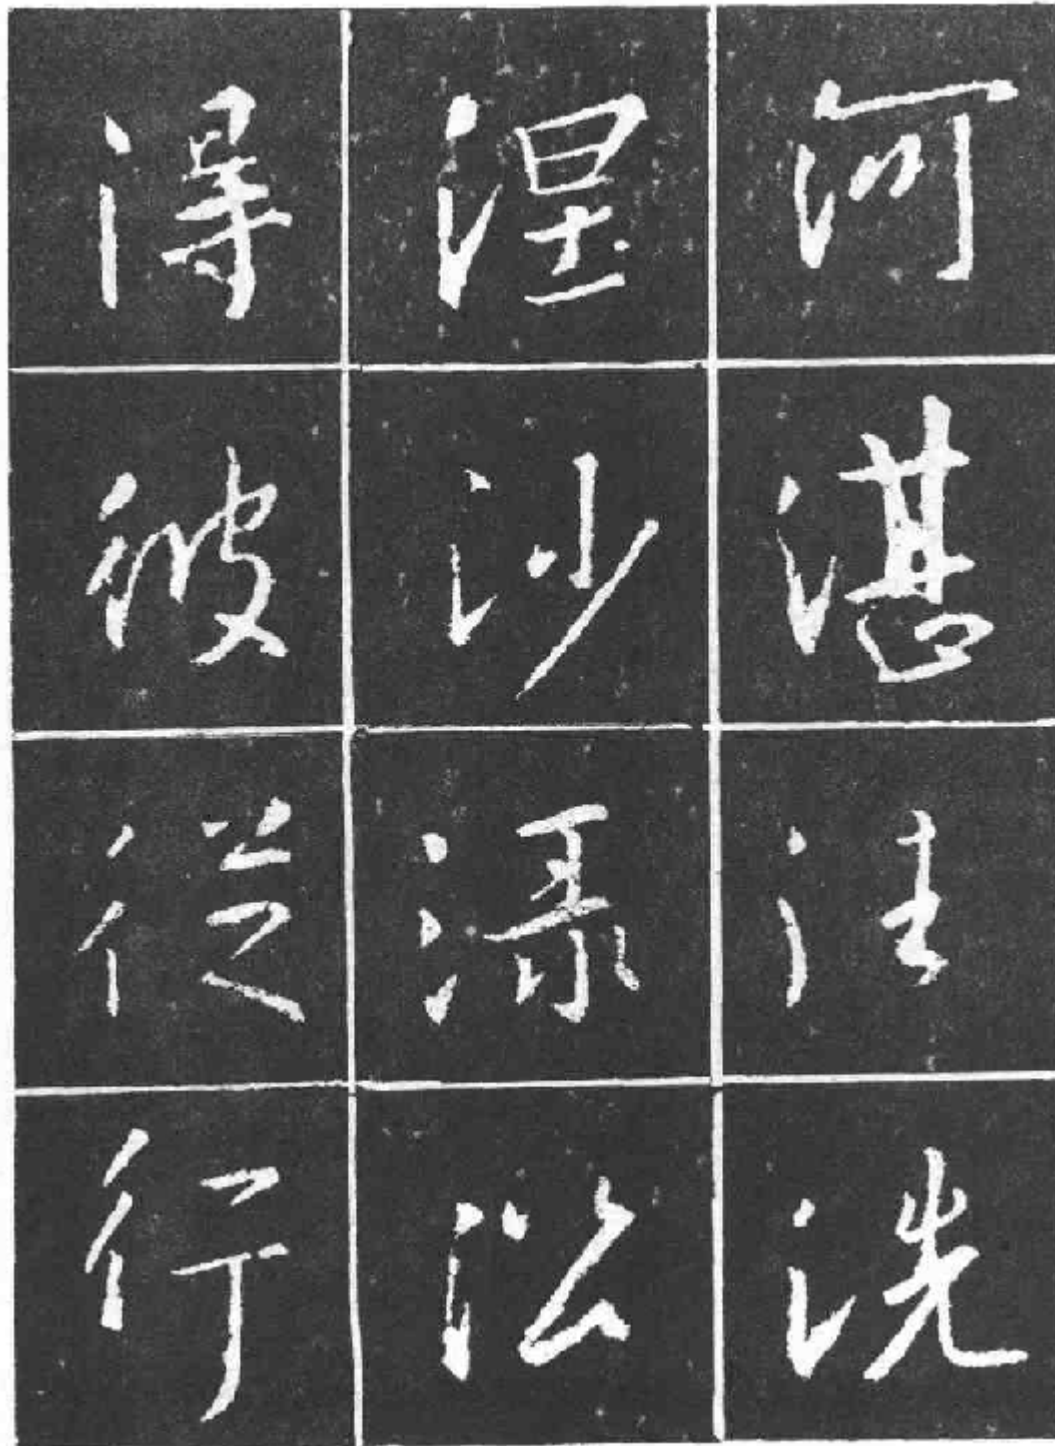 河湛注洗
涅沙沿
得彼從行